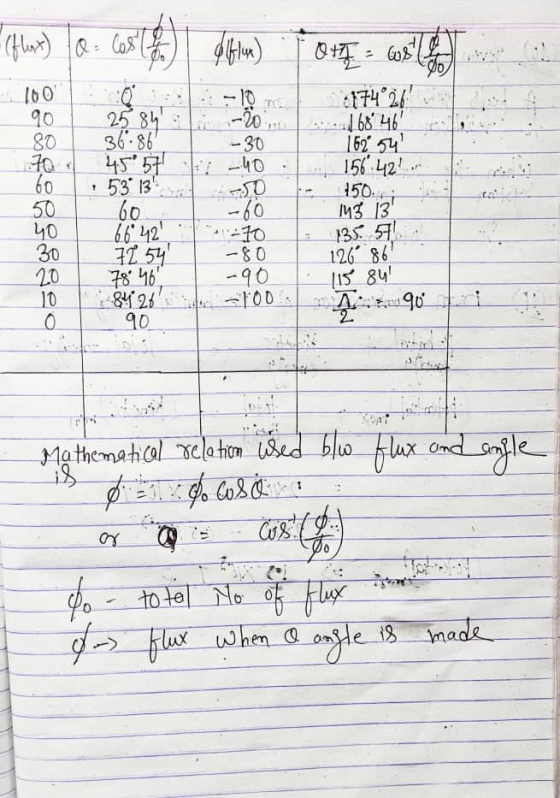 (flux) Q = Cos⁻¹(ϕ/ϕ₀) ϕ(flux) Q+π/2 = cos⁻¹(ϕ/ϕ₀)
100 0° -10 174° 26'
90 25° 84' -20 168° 46'
80 36° 86' -30 162° 54'
70 45° 57' -40 156° 42'
60 53° 13' -50 150
50 60 -60 143° 13'
40 66° 42' -70 135° 57'
30 72° 54' -80 126° 86'
20 78° 46' -90 115° 84'
10 84° 26' -100 π/2 = 90°
0 90
Mathematical relation used b/w flux and angle
is
ϕ = ϕ₀ Cos Q
or Q = Cos⁻¹(ϕ/ϕ₀)
ϕ₀ - totel No of flux
ϕ → flux when Q angle is made